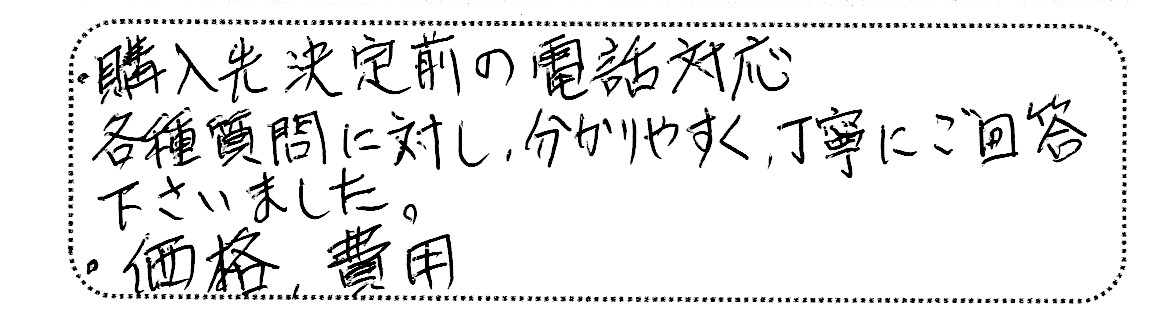 ・購入先決定前の電話対応
各種質問に対し、分かりやすく、丁寧にご回答
下さいました。
・価格、費用